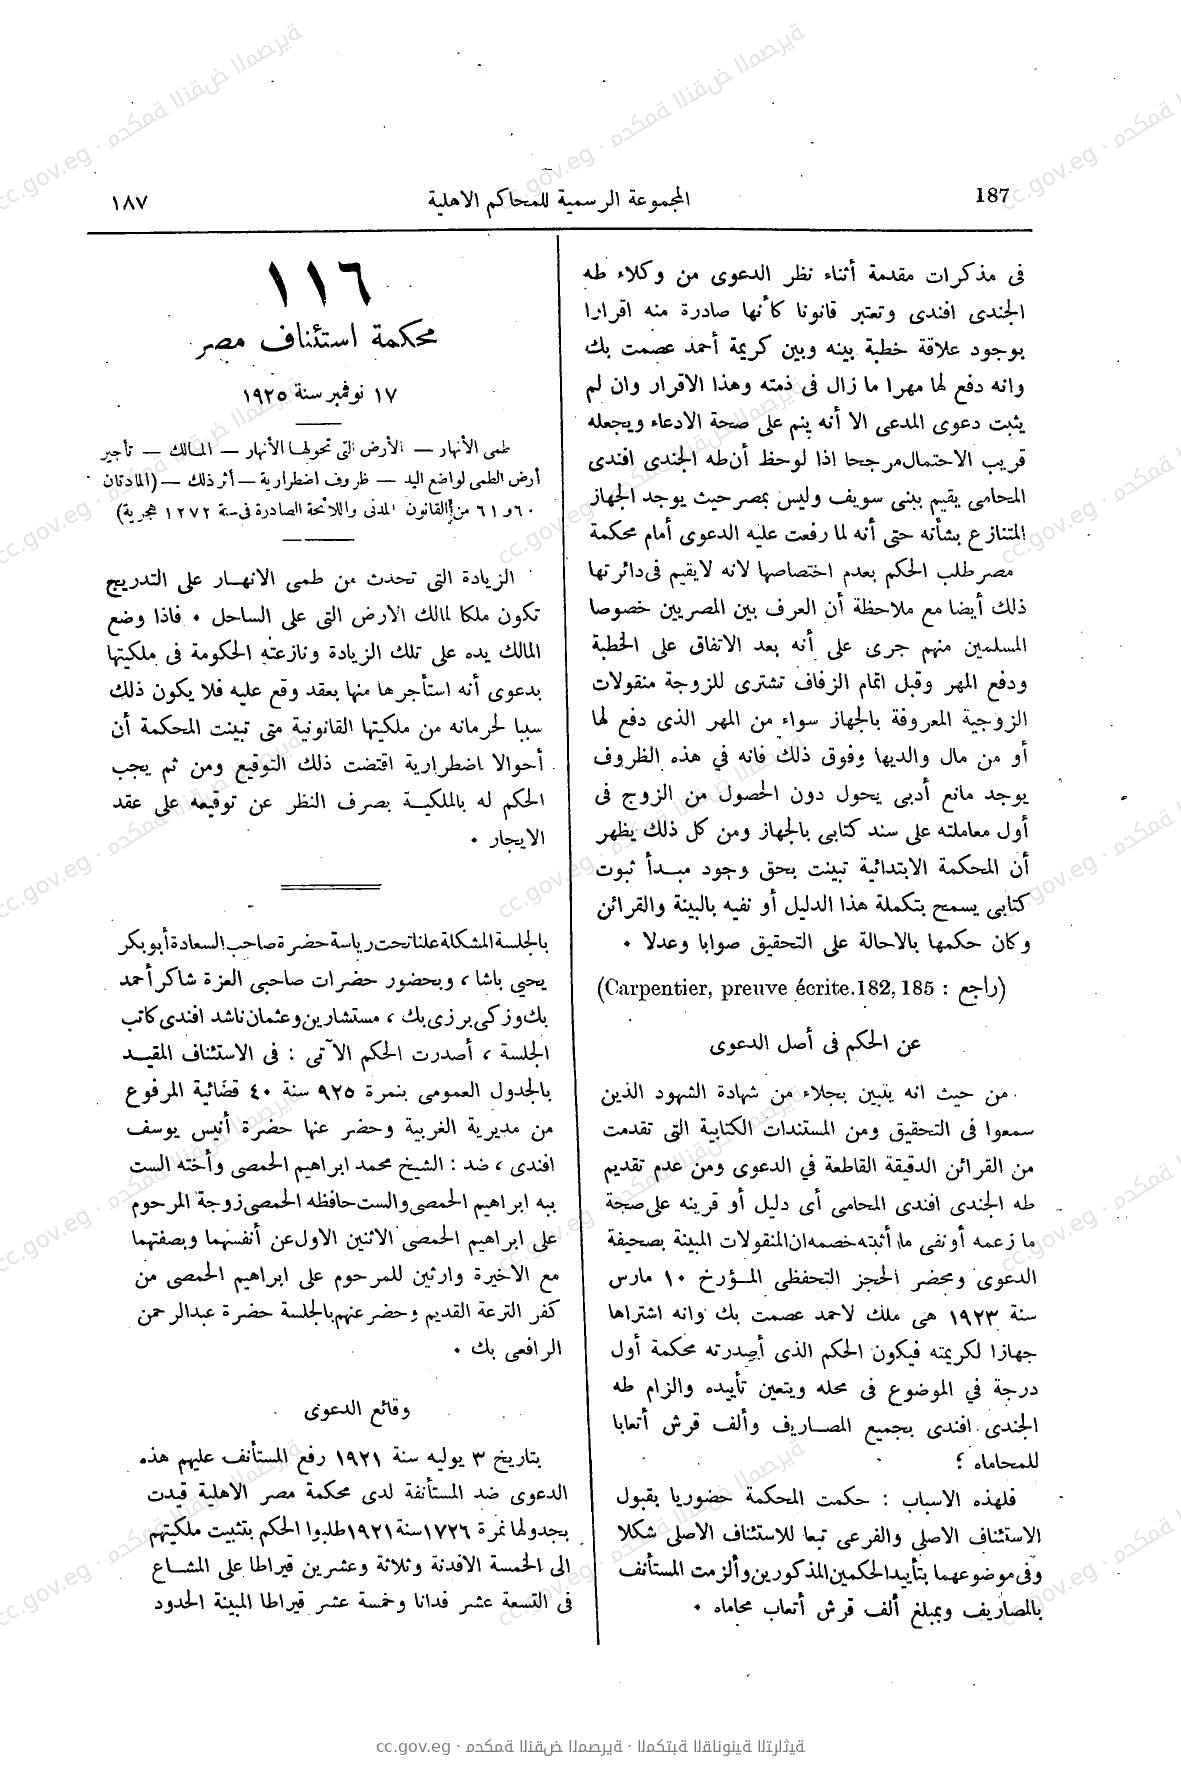 187
المجموعة الرسمية للمحاكم الاهلية
١٨٧
فى مذكرات مقدمة أثناء نظر الدعوى من وكلاء طه
الجندى افندى وتعتبر قانونا كأنها صادرة منه اقرارا
بوجود علاقة خطبة بينه وبين كريمة أحمد عصمت بك
وانه دفع لها مهرا ما زال فى ذمته وهذا الاقرار وان لم
يثبت دعوى المدعى الا أنه ينم على صحة الادعاء ويجعله
قريب الاحتمال مرجحا اذا لوحظ أن طه الجندى افندى
المحامى يقيم ببنى سويف وليس بمصر حيث يوجد الجهاز
المتنازع بشأنه حتى أنه لما رفعت عليه الدعوى أمام محكمة
مصر طلب الحكم بعدم اختصاصها لانه لا يقيم فى دائرتها
ذلك أيضا مع ملاحظة أن العرف بين المصريين خصوصا
المسلمين منهم جرى على أنه بعد الاتفاق على الخطبة
ودفع المهر وقبل اتمام الزفاف تشترى للزوجة منقولات
الزوجية المعروفة بالجهاز سواء من المهر الذى دفع لها
أو من مال والديها وفوق ذلك فانه في هذه الظروف
يوجد مانع أدبى يحول دون الحصول من الزوج فى
أول معاملته على سند كتابى بالجهاز ومن كل ذلك يظهر
أن المحكمة الابتدائية تبينت بحق وجود مبدأ ثبوت
كتابى يسمح بتكملة هذا الدليل أو نفيه بالبينة والقرائن
وكان حكمها بالاحالة على التحقيق صوابا وعدلا .
(راجع : Carpentier, preuve écrite.182, 185)
عن الحكم فى أصل الدعوى
من حيث انه يتبين بجلاء من شهادة الشهود الذين
سمعوا فى التحقيق ومن المستندات الكتابية التى تقدمت
من القرائن الدقيقة القاطعة في الدعوى ومن عدم تقديم
طه الجندى افندى المحامى أى دليل أو قرينه على صحة
ما زعمه أو نفى ما أثبته خصمه ان المنقولات المبينة بصحيفة
الدعوى ومحضر الحجز التحفظى المؤرخ ١٠ مارس
سنة ١٩٢٣ هى ملك لاحمد عصمت بك وانه اشتراها
جهازا لكريمته فيكون الحكم الذى أصدرته محكمة أول
درجة في الموضوع فى محله ويتعين تأييده والزام طه
الجندى افندى بجميع المصاريف وألف قرش أتعابا
للمحاماه ؛
فلهذه الاسباب : حكمت المحكمة حضوريا بقبول
الاستئناف الاصلى والفرعى تبعا للاستئناف الاصلى شكلا
وفى موضوعهما بتأييد الحكمين المذكورين وألزمت المستأنف
بالمصاريف وبمبلغ ألف قرش أتعاب محاماه .
١١٦
محكمة استئناف مصر
١٧ نوفمبر سنة ١٩٢٥
طمى الأنهار — الأرض التى تحولها الأنهار — المالك — تأجير
أرض الطمى لواضع اليد — ظروف اضطرارية — أثر ذلك — (المادتان
٦٠ و٦١ من القانون المدنى واللائحة الصادرة فى سنة ١٢٧٢ هجرية)
الزيادة التى تحدث من طمى الانهار على التدريج
تكون ملكا لمالك الارض التى على الساحل . فاذا وضع
المالك يده على تلك الزيادة ونازعته الحكومة فى ملكيتها
بدعوى أنه استأجرها منها بعقد وقع عليه فلا يكون ذلك
سببا لحرمانه من ملكيتها القانونية متى تبينت المحكمة أن
أحوالا اضطرارية اقتضت ذلك التوقيع ومن ثم يجب
الحكم له بالملكية بصرف النظر عن توقيعه على عقد
الايجار .
بالجلسة المشكلة علنا تحت رياسة حضرة صاحب السعادة أبو بكر
يحيى باشا ، وبحضور حضرات صاحبى العزة شاكر أحمد
بك وزكى برزى بك ، مستشارين وعثمان ناشد افندى كاتب
الجلسة ، أصدرت الحكم الآتى : فى الاستئناف المقيد
بالجدول العمومى بنمرة ٩٢٥ سنة ٤٠ قضائية المرفوع
من مديرية الغربية وحضر عنها حضرة أنيس يوسف
افندى ، ضد : الشيخ محمد ابراهيم الحمصى وأخته الست
ببه ابراهيم الحمصى والست حافظه الحمصى زوجة المرحوم
على ابراهيم الحمصى الاثنين الاول عن أنفسهما وبصفتهما
مع الاخيرة وارثين للمرحوم على ابراهيم الحمصى من
كفر الترعة القديم وحضر عنهم بالجلسة حضرة عبدالرحمن
الرافعى بك .
وقائع الدعوى
بتاريخ ٣ يوليه سنة ١٩٢١ رفع المستأنف عليهم هذه
الدعوى ضد المستأنفة لدى محكمة مصر الاهلية قيدت
بجدولها نمرة ١٧٢٦ سنة ١٩٢١ طلبوا الحكم بتثبيت ملكيتهم
الى الخمسة الافدنة وثلاثة وعشرين قيراطا على المشاع
فى التسعة عشر فدانا وخمسة عشر قيراطا المبينة الحدود
cc.gov.eg · محكمة النقض المصرية · المكتبة القانونية التراثية